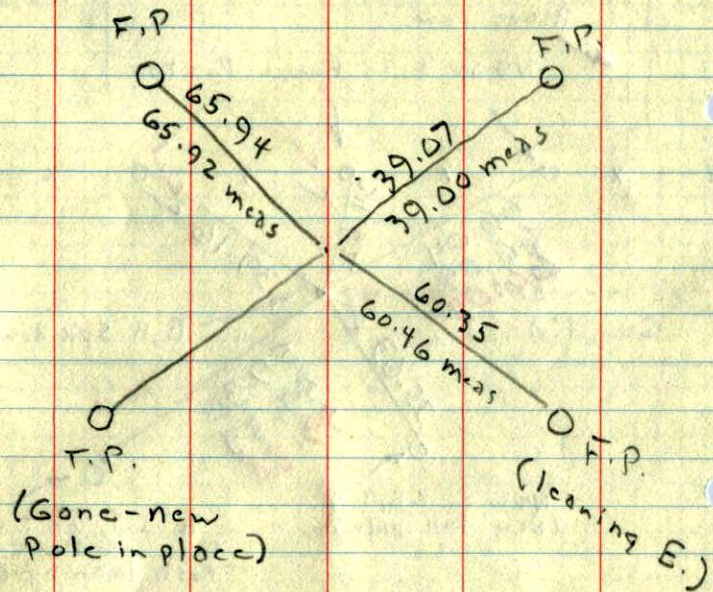 F.P
F.P.
65.94
65.92 meas
39.07
39.00 meas
60.35
60.46 meas
T.P.
F.P.
(Gone-new
Pole in place)
(leaning E.)